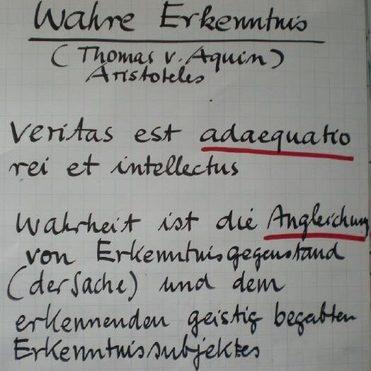 Wahre Erkenntnis
(Thomas v. Aquin)
Aristoteles
Veritas est adaequatio
rei et intellectus
Wahrheit ist die Angleichung
von Erkenntnisgegenstand
(der Sache) und dem
erkennenden geistig begabten
Erkenntnissubjektes